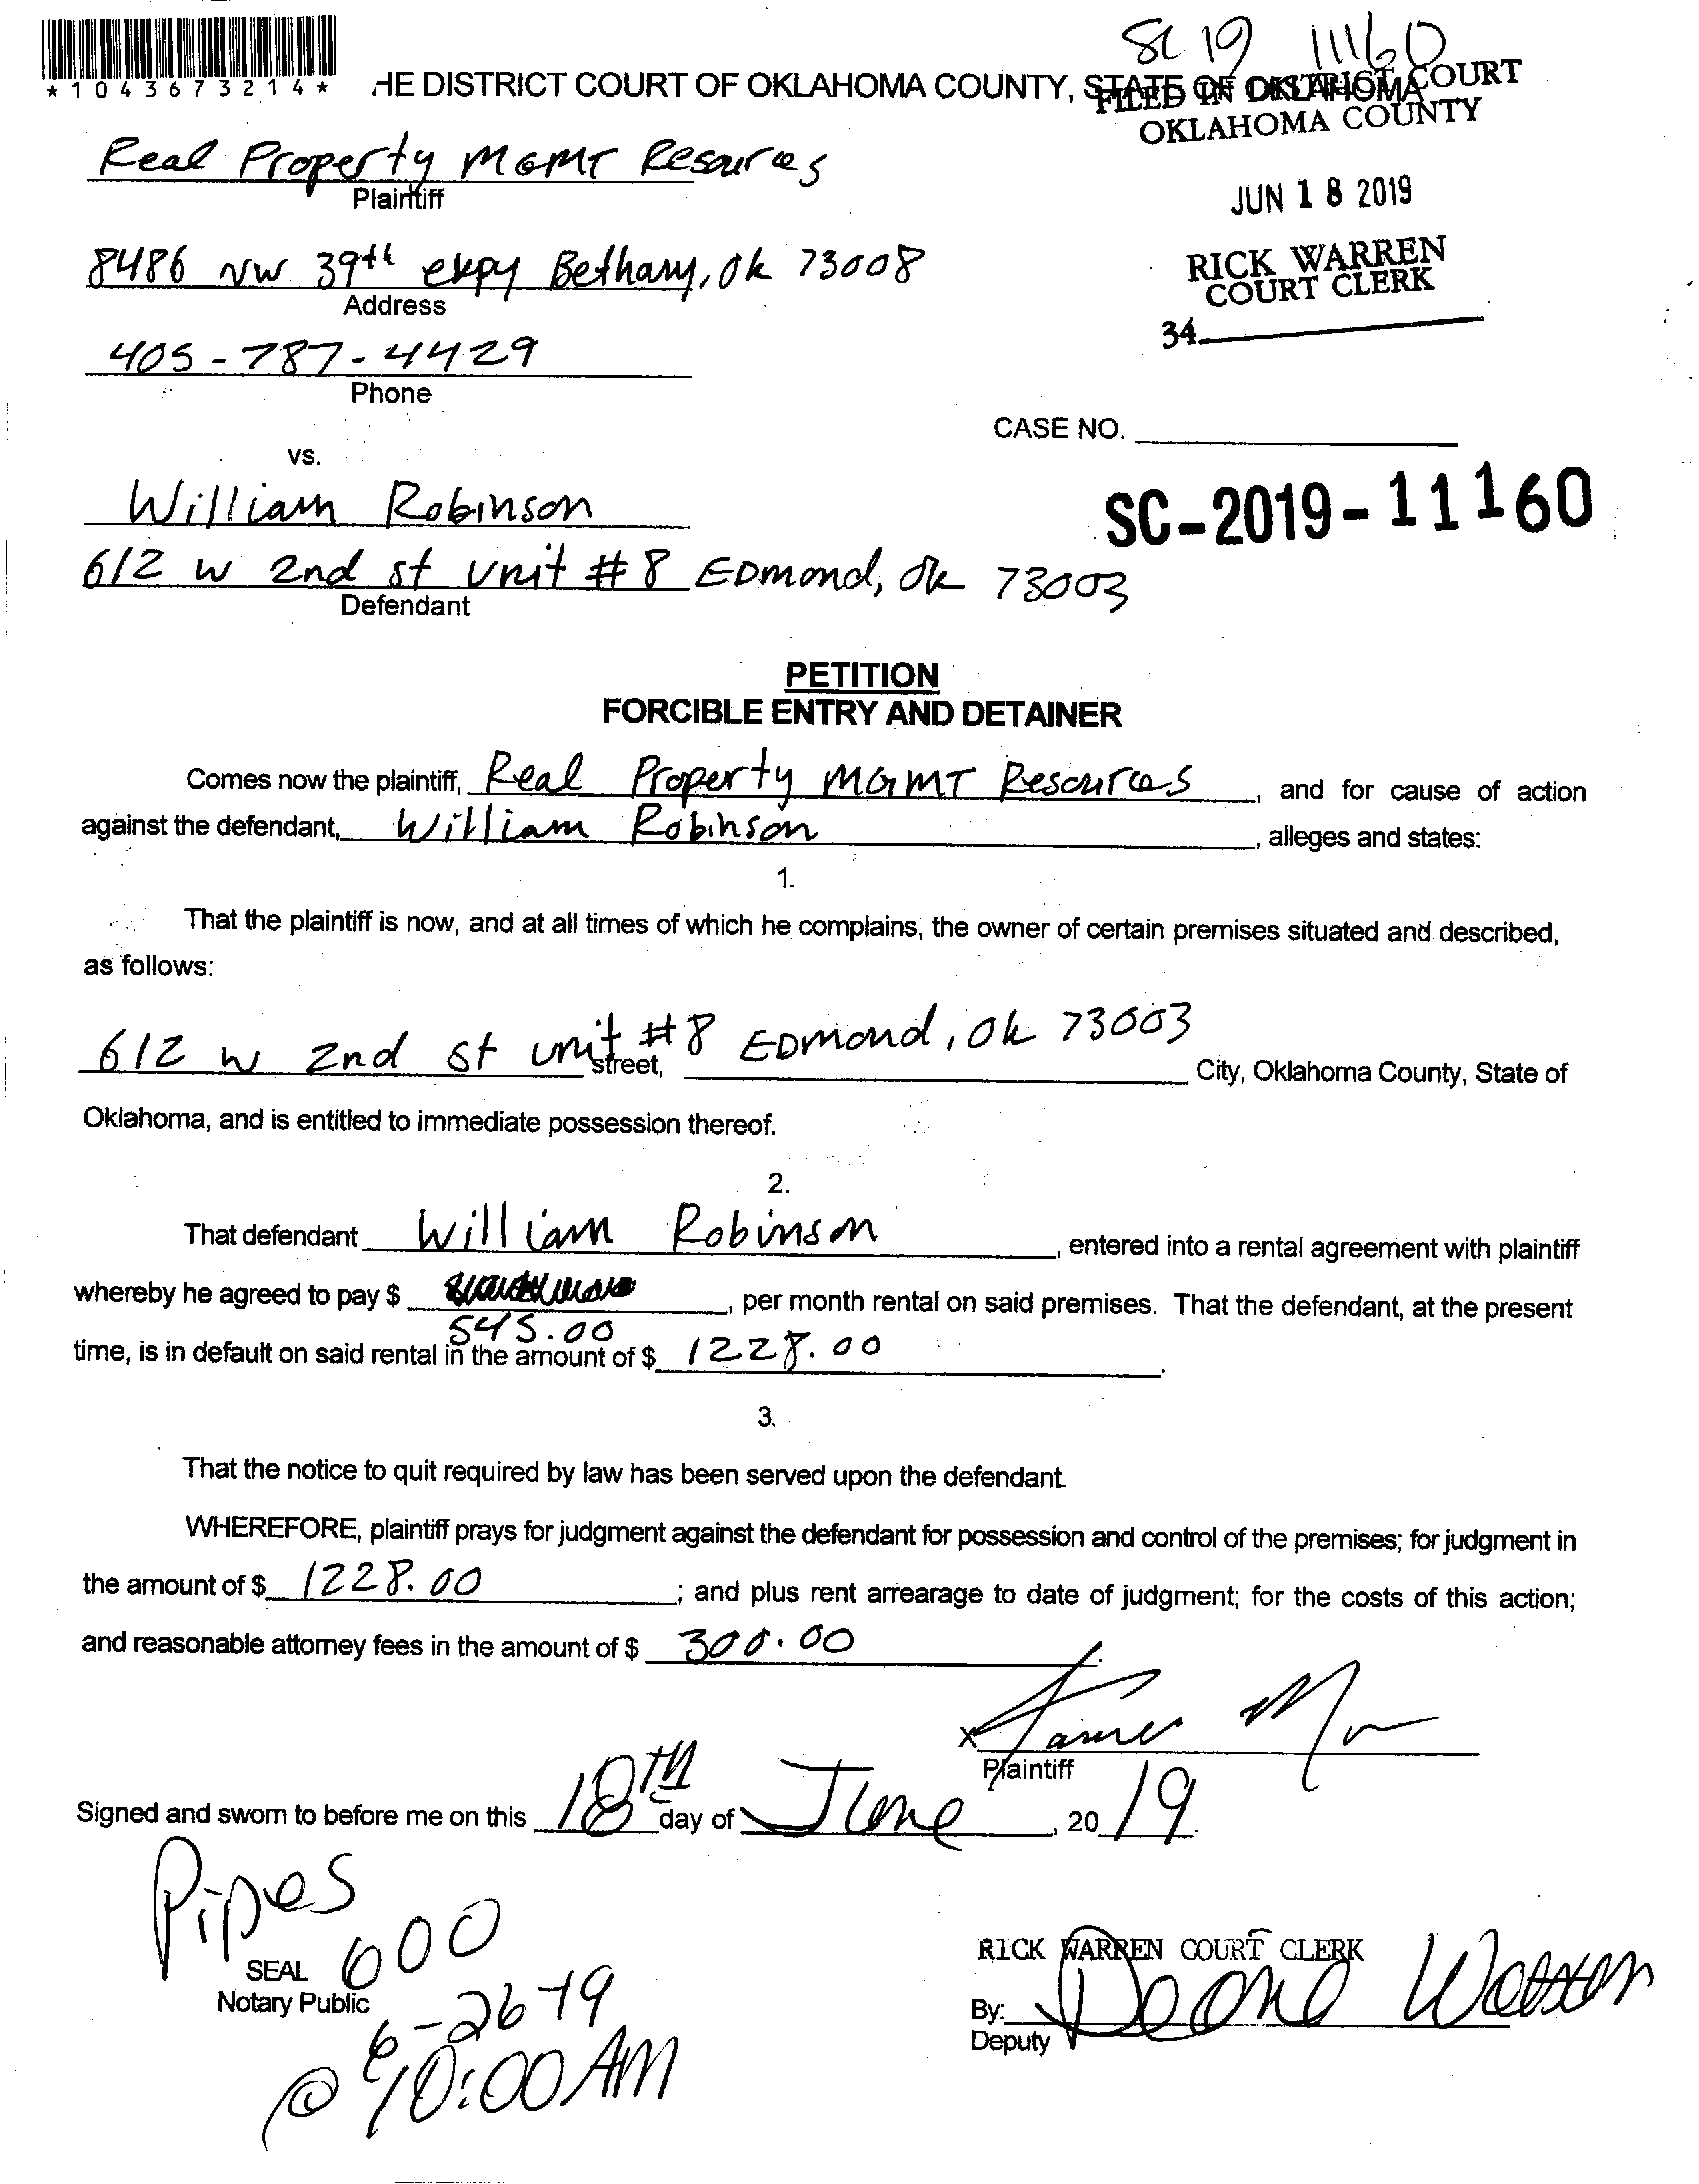 SC 19 11160
*1043673214*
HE DISTRICT COURT OF OKLAHOMA COUNTY, STATE OF OKLAHOMA
FILED IN DISTRICT COURT
OKLAHOMA COUNTY
Real Property MGMT Resources
Plaintiff
JUN 18 2019
8486 NW 39th expy Bethany, Ok 73008
Address
RICK WARREN
COURT CLERK
34
405-787-4429
Phone
CASE NO.
vs.
William Robinson
SC-2019-11160
612 W 2nd st Unit #8 EDmond, Ok 73003
Defendant
PETITION
FORCIBLE ENTRY AND DETAINER
Comes now the plaintiff, Real Property MGMT Resources, and for cause of action
against the defendant, William Robinson, alleges and states:
1.
That the plaintiff is now, and at all times of which he complains, the owner of certain premises situated and described,
as follows:
612 W 2nd st unit #8 EDmond, Ok 73003
street, City, Oklahoma County, State of
Oklahoma, and is entitled to immediate possession thereof.
2.
That defendant William Robinson, entered into a rental agreement with plaintiff
whereby he agreed to pay $, per month rental on said premises. That the defendant, at the present
545.00
time, is in default on said rental in the amount of $ 1228.00.
3.
That the notice to quit required by law has been served upon the defendant.
WHEREFORE, plaintiff prays for judgment against the defendant for possession and control of the premises; for judgment in
the amount of $ 1228.00; and plus rent arrearage to date of judgment; for the costs of this action;
and reasonable attorney fees in the amount of $ 300.00.
X
Plaintiff
Signed and sworn to before me on this 18TH day of June, 20 19.
Pipes
600
SEAL
Notary Public
6-26-19
@ 10:00 AM
RICK WARREN COURT CLERK
By:
Deputy